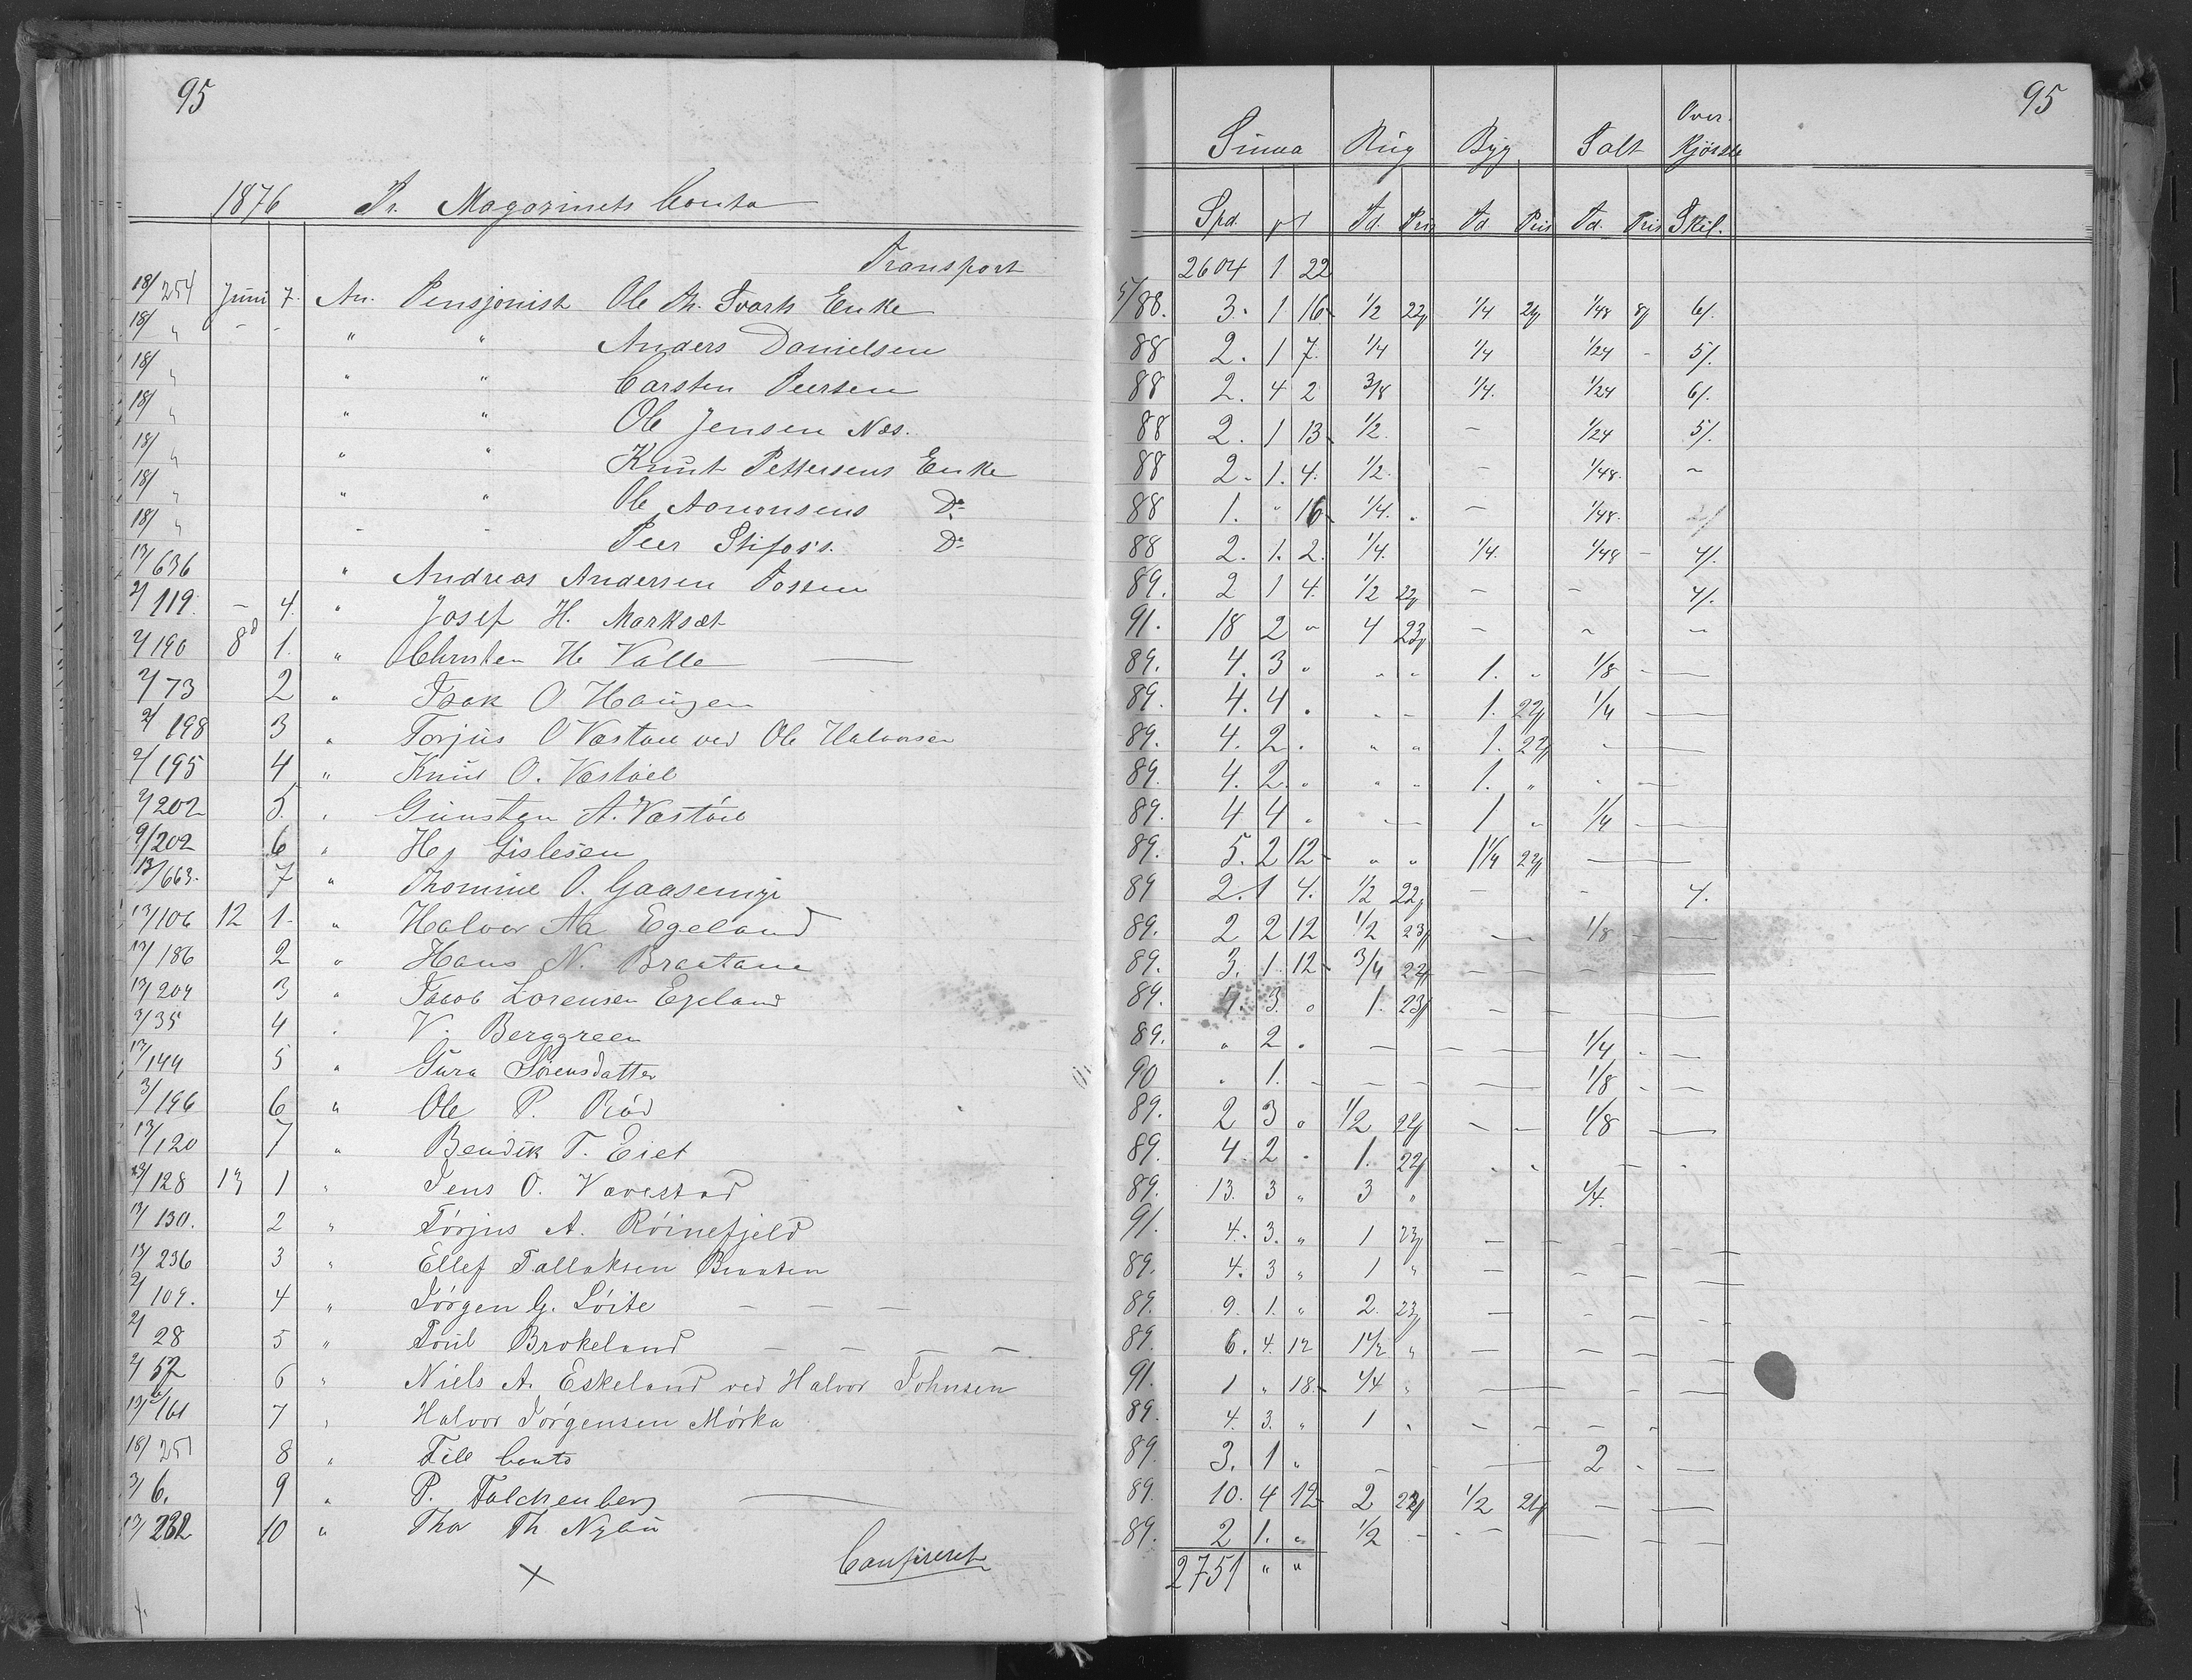 95
1876 Pr. Magazinets Conto
Transport
18/254 Juni 7. An. Pensjonist Ole Th. Svarts Enke
18/ " - - " " Anders Danielsen
18/ " " " Carsten Peersen
18/ " " " Ole Jensen Næs.
18/ " " " Knut Pettersens Enke
18/ " " " Ole Aanonsens Do
18/ " - - Peer Stifoss. Do
13/636 " Andreas Andersen Fossen
2/119. - 4. " Josef H. Marksæt
2/190 8d 1. " Christen H. Valle
2/73 2 " Isak O Haugen
2/198 3 " Torjus O Væstøel ved Ole Halvorsen
2/195 4 " Knud O. Væstøel
2/202 5. " Gunsten A. Væstøel
9/202 6 " Hj Gislesen
13/663. 7 " Thomine O. Gaasemyr
13/106 12 1. " Halvor Aa Egeland
13/186 2 " Hans N. Braatane
13/204 3 " Jacob Lorensen Egeland
3/35 4 " V. Berggreen
13/144 5 " Gura Sørensdatter
3/196 6 " Ole P. Rød
13/120 7 " Bendik T. Eiet
13/128 13 1 " Jens O. Vavestad
13/130. 2 " Tørjus A. Røinefjeld
13/236 3 " Ellef Tallaksen Braaten
2/109. 4 " Jørgen G. Løite - - -
2/28 5 " Foul Brokeland - - - -
2/52 6 " Niels A. Eskeland ved Halvor Johnsen
13/161 7 " Halvor Jørgensen Mørka
18/251 8 " Fell Conto
3/6. 9 " P. Falchenberg
13/232 10 " Thor Th. Nylu
x Confereret
95
Summa Rug Byg Salt Over-
Kjørsel
Spd. Td. Pris Td Pris Td. Pris Skil.
2604 1 22
5/88. 3. 1 16 1/2 22 1/4 21 1/48 8 6/.
88 2. 1 7. 1/4 1/4 1/24 - 5/.
88 2. 4 2 3/8 1/4. 1/24 6/.
88 2. 1 13 1/2. - 1/24 5/.
88 2. 1. 4. 1/2. - 1/48. -
88 1. " 16 1/4. - 1/48.
88 2. 1. 2. 1/4. 1/4. 1/48 - 4/.
89. 2 1 4. 1/2 22 - - 4/.
91. 18 2 " 4 23 - - -
89. 4. 3 " " " 1. " 1/8 - -
89. 4. 4 . " - 1. 22 1/4 -
89. 4. 2 . " " 1. 22 " -
89. 4. 2. " " " 1. " " -
89. 4 4 " " - 1 " 1/4 - -
89. 5. 2 12 " " 1 1/4 22 -
89 2. 1 4. 1/2 22 - - 4.
89. 2 2 12 1/2 23 - 1/8 - -
89. 3. 1 12 3/4 22 - - -
89. 4. 3. " 1. 23 - - -
89. " 2 . - - - 1/4 - -
90 " 1. - - - - 1/8 - -
89. 2 3 " 1/2 22 - - 1/8 -
89. 4. 2 . 1. 22 " " - "
89. 13. 3 " 3 " 1/4.
91. 4. 3. " 1 23 - - - - -
89. 4. 3 " 1 " - - - -
89. 9. 1. " 2. 23 - - - -
89. 6. 4. 12 1 1/2 " - - - -
91. 1 " 18. 1/4 " - - -
89. 4. 3. " 1 " - - - -
89. 3. 1 " - - - 2 - -
89. 10. 4 12 2 22 1/2 21 - -
89. 2 1. " 1/2 - - - - - -
2751 " "